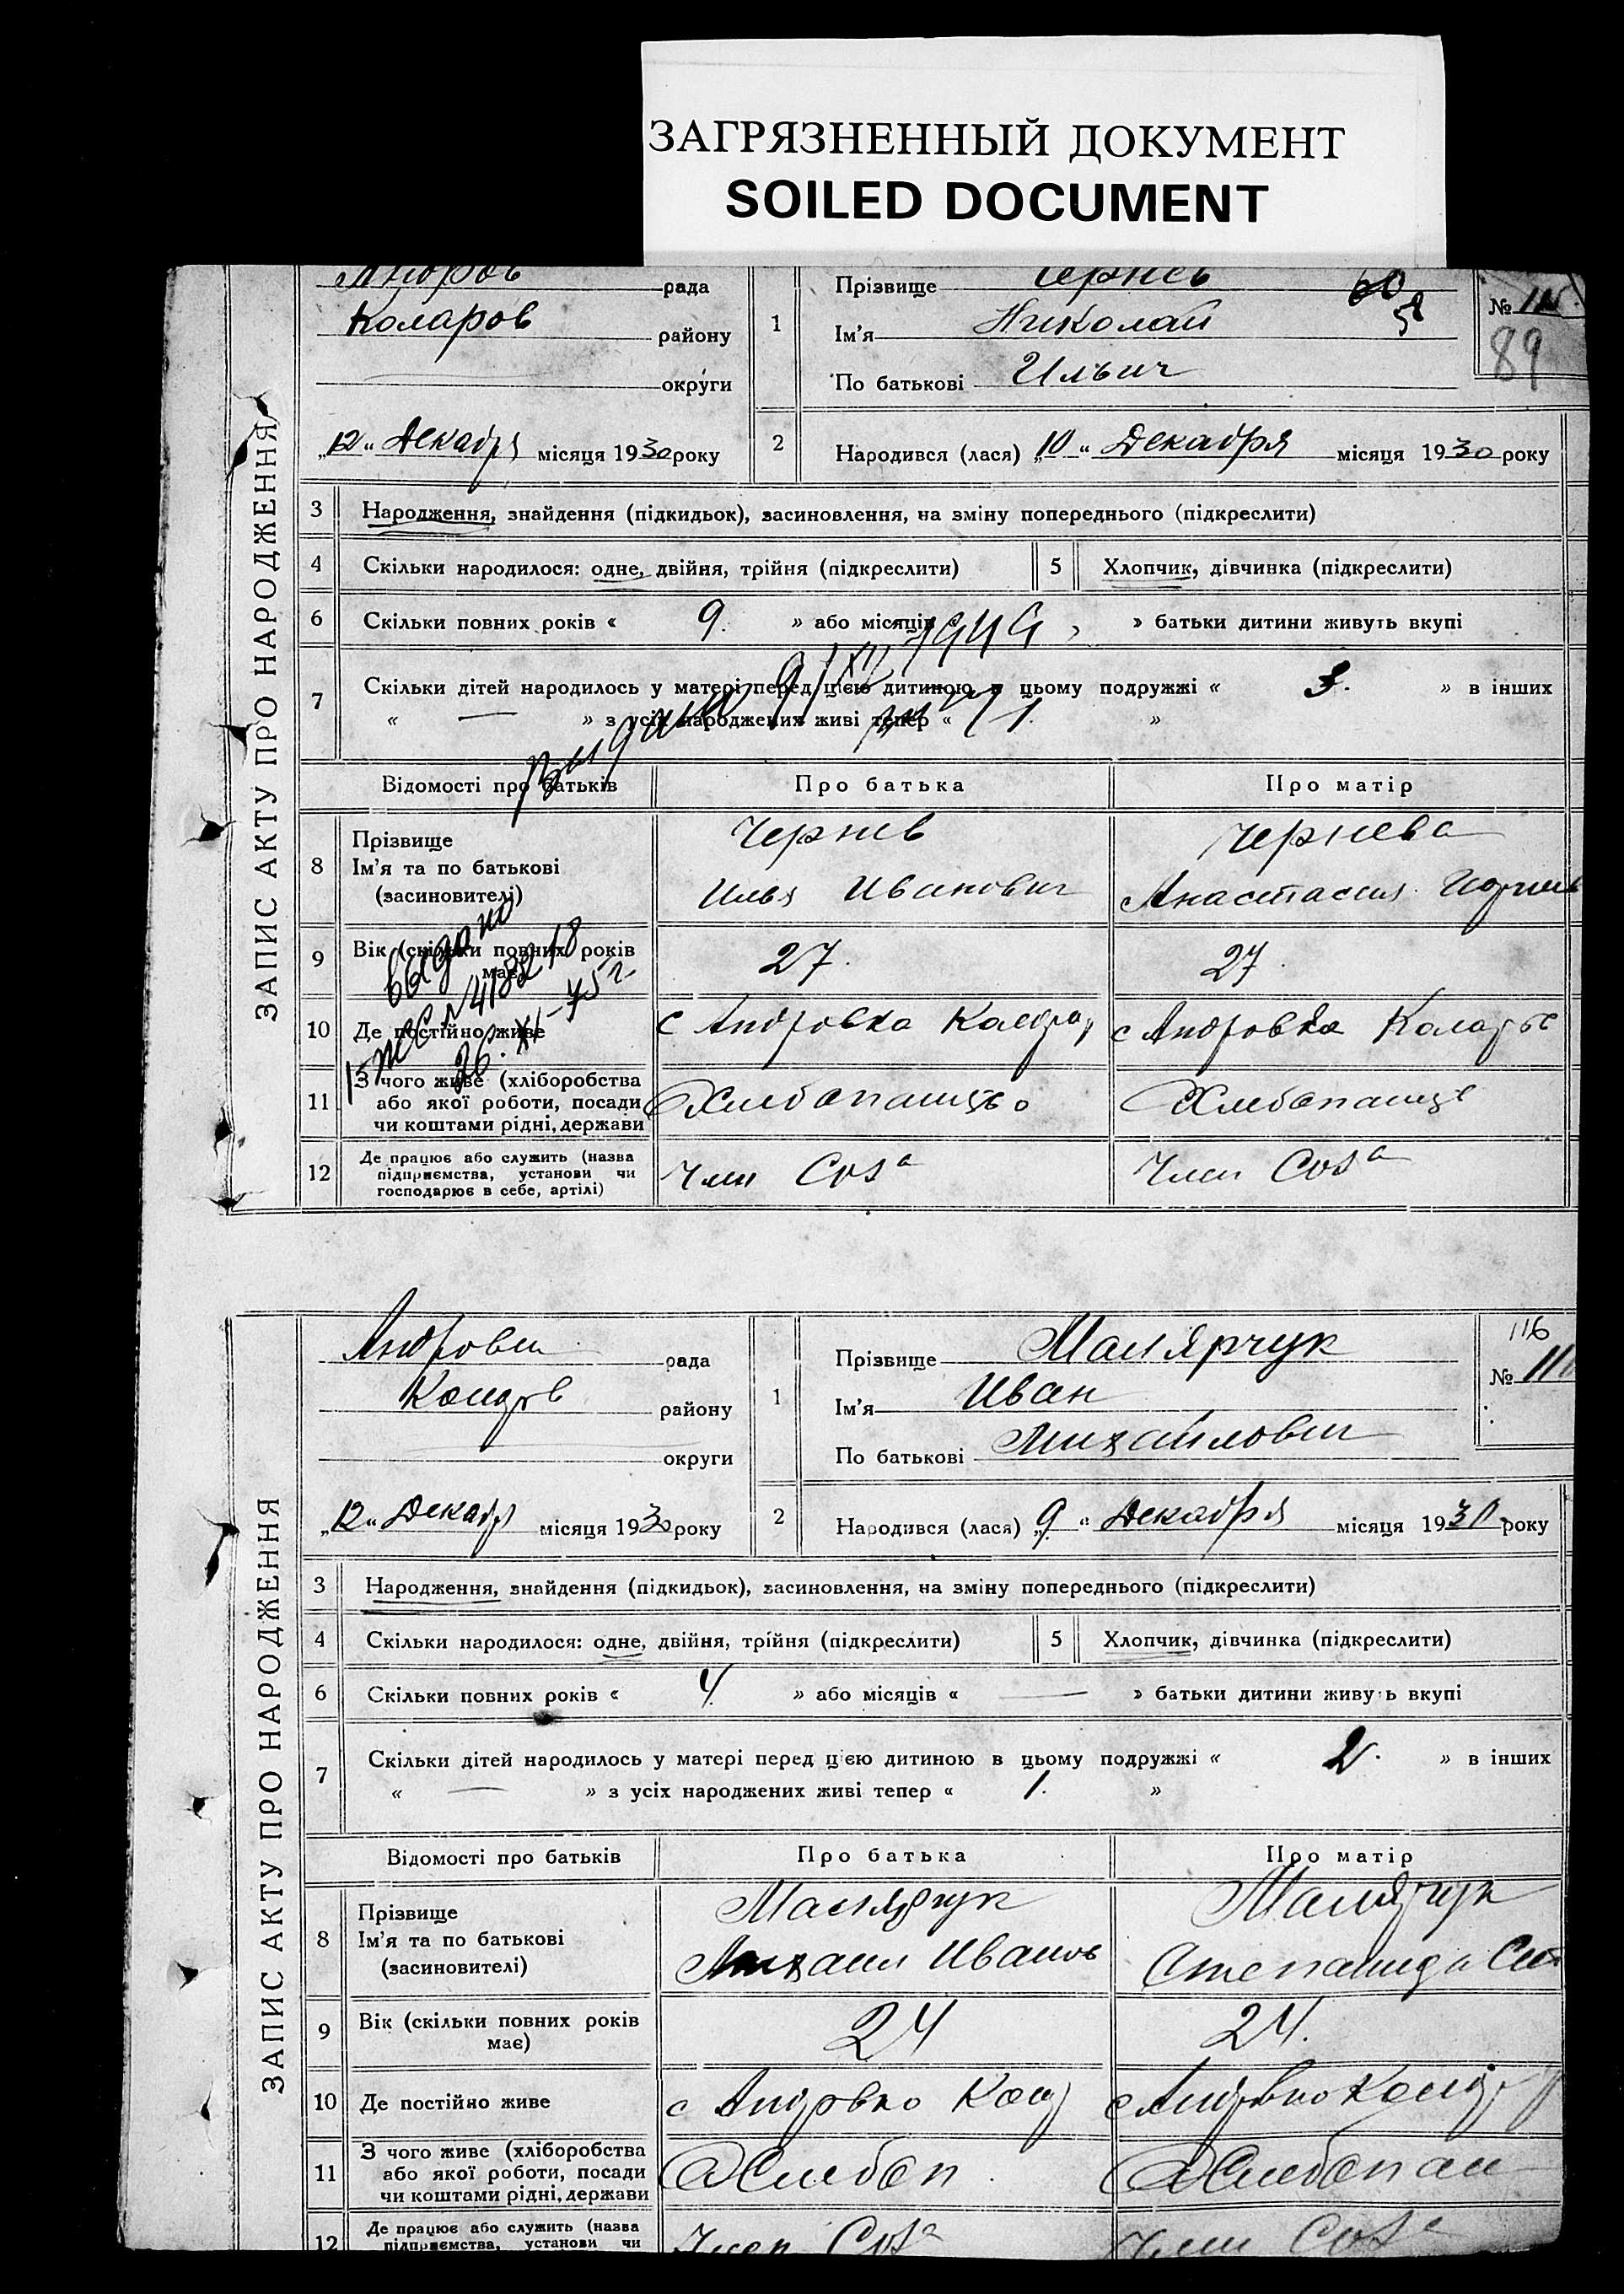 ЗАГРЯЗНЕННЫЙ ДОКУМЕНТ
SOILED DOCUMENT
ЗАПИС АКТУ ПРО НАРОДЖЕННЯ
рада
Коларов району
округи
„12“ Декабря місяця 1930 року
1
Прізвище Чернев
Ім'я Николай
По батькові Ильич
60
58
№
89
2
Народився (лася) „10“ Декабря місяця 1930 року
3 Народження, знайдення (підкидьок), засиновлення, на зміну попереднього (підкреслити)
4 Скільки народилося: одне, двійня, трійня (підкреслити)
5 Хлопчик, дівчинка (підкреслити)
6 Скільки повних років « 9. » або місяців « » батьки дитини живуть вкупі
7 Скільки дітей народилось у матері перед цією дитиною в цьому подружжі « 3. » в інших
« — » з усіх народжених живі тепер « 1. »
Відомості про батьків Про батька Про матір
8 Прізвище
Ім'я та по батькові
(засиновителі)
Чернев
Илья Иванович
Чернева
Анастасия
9 Вік (скільки повних років має)
27.
27.
10 Де постійно живе
с Андровка
с Андровка
11 З чого живе (хліборобства
або якої роботи, посади
чи коштами рідні, держави
12 Де працює або служить (назва
підприємства, установи чи
господарює в себе, артілі)
Член Соза
Член Соза
выдано
26. XI-75 г.
ЗАПИС АКТУ ПРО НАРОДЖЕННЯ
рада
району
округи
„12“ Декабр місяця 1930 року
1
Прізвище Малярчук
Ім'я Иван
По батькові Михайлович
116
№
2
Народився (лася) „9“ Декабря місяця 1930 року
3 Народження, знайдення (підкидьок), засиновлення, на зміну попереднього (підкреслити)
4 Скільки народилося: одне, двійня, трійня (підкреслити)
5 Хлопчик, дівчинка (підкреслити)
6 Скільки повних років « 4 » або місяців « — » батьки дитини живуть вкупі
7 Скільки дітей народилось у матері перед цією дитиною в цьому подружжі « 2. » в інших
« — » з усіх народжених живі тепер « 1. »
Відомості про батьків Про батька Про матір
8 Прізвище
Ім'я та по батькові
(засиновителі)
Малярчук
Михаил Иванов
Малярчук
Степанида
9 Вік (скільки повних років
має)
24
24.
10 Де постійно живе
11 З чого живе (хліборобства
або якої роботи, посади
чи коштами рідні, держави
Хлебоп
Хлебопаш
12 Де працює або служить (назва
підприємства, установи чи
Член Соза
Член Соза